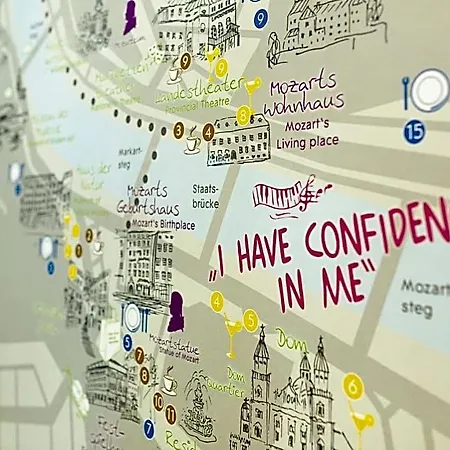 9
9
9
museum
Landestheater
Provincial Theatre
Mozarts
Wohnhaus
Mozart's
Living place
8
3
4
15
Markart-
steg
Haus der
Natur
Staats-
brücke
Mozarts
Geburtshaus
Mozart's Birthplace
„I HAVE CONFIDEN
IN ME“
Mozart
steg
1
2
4
5
5
Mozartstatue
Statue of Mozart
Dom
Dom
quartier
6
7
8
10
11
7
Fest-
Resid